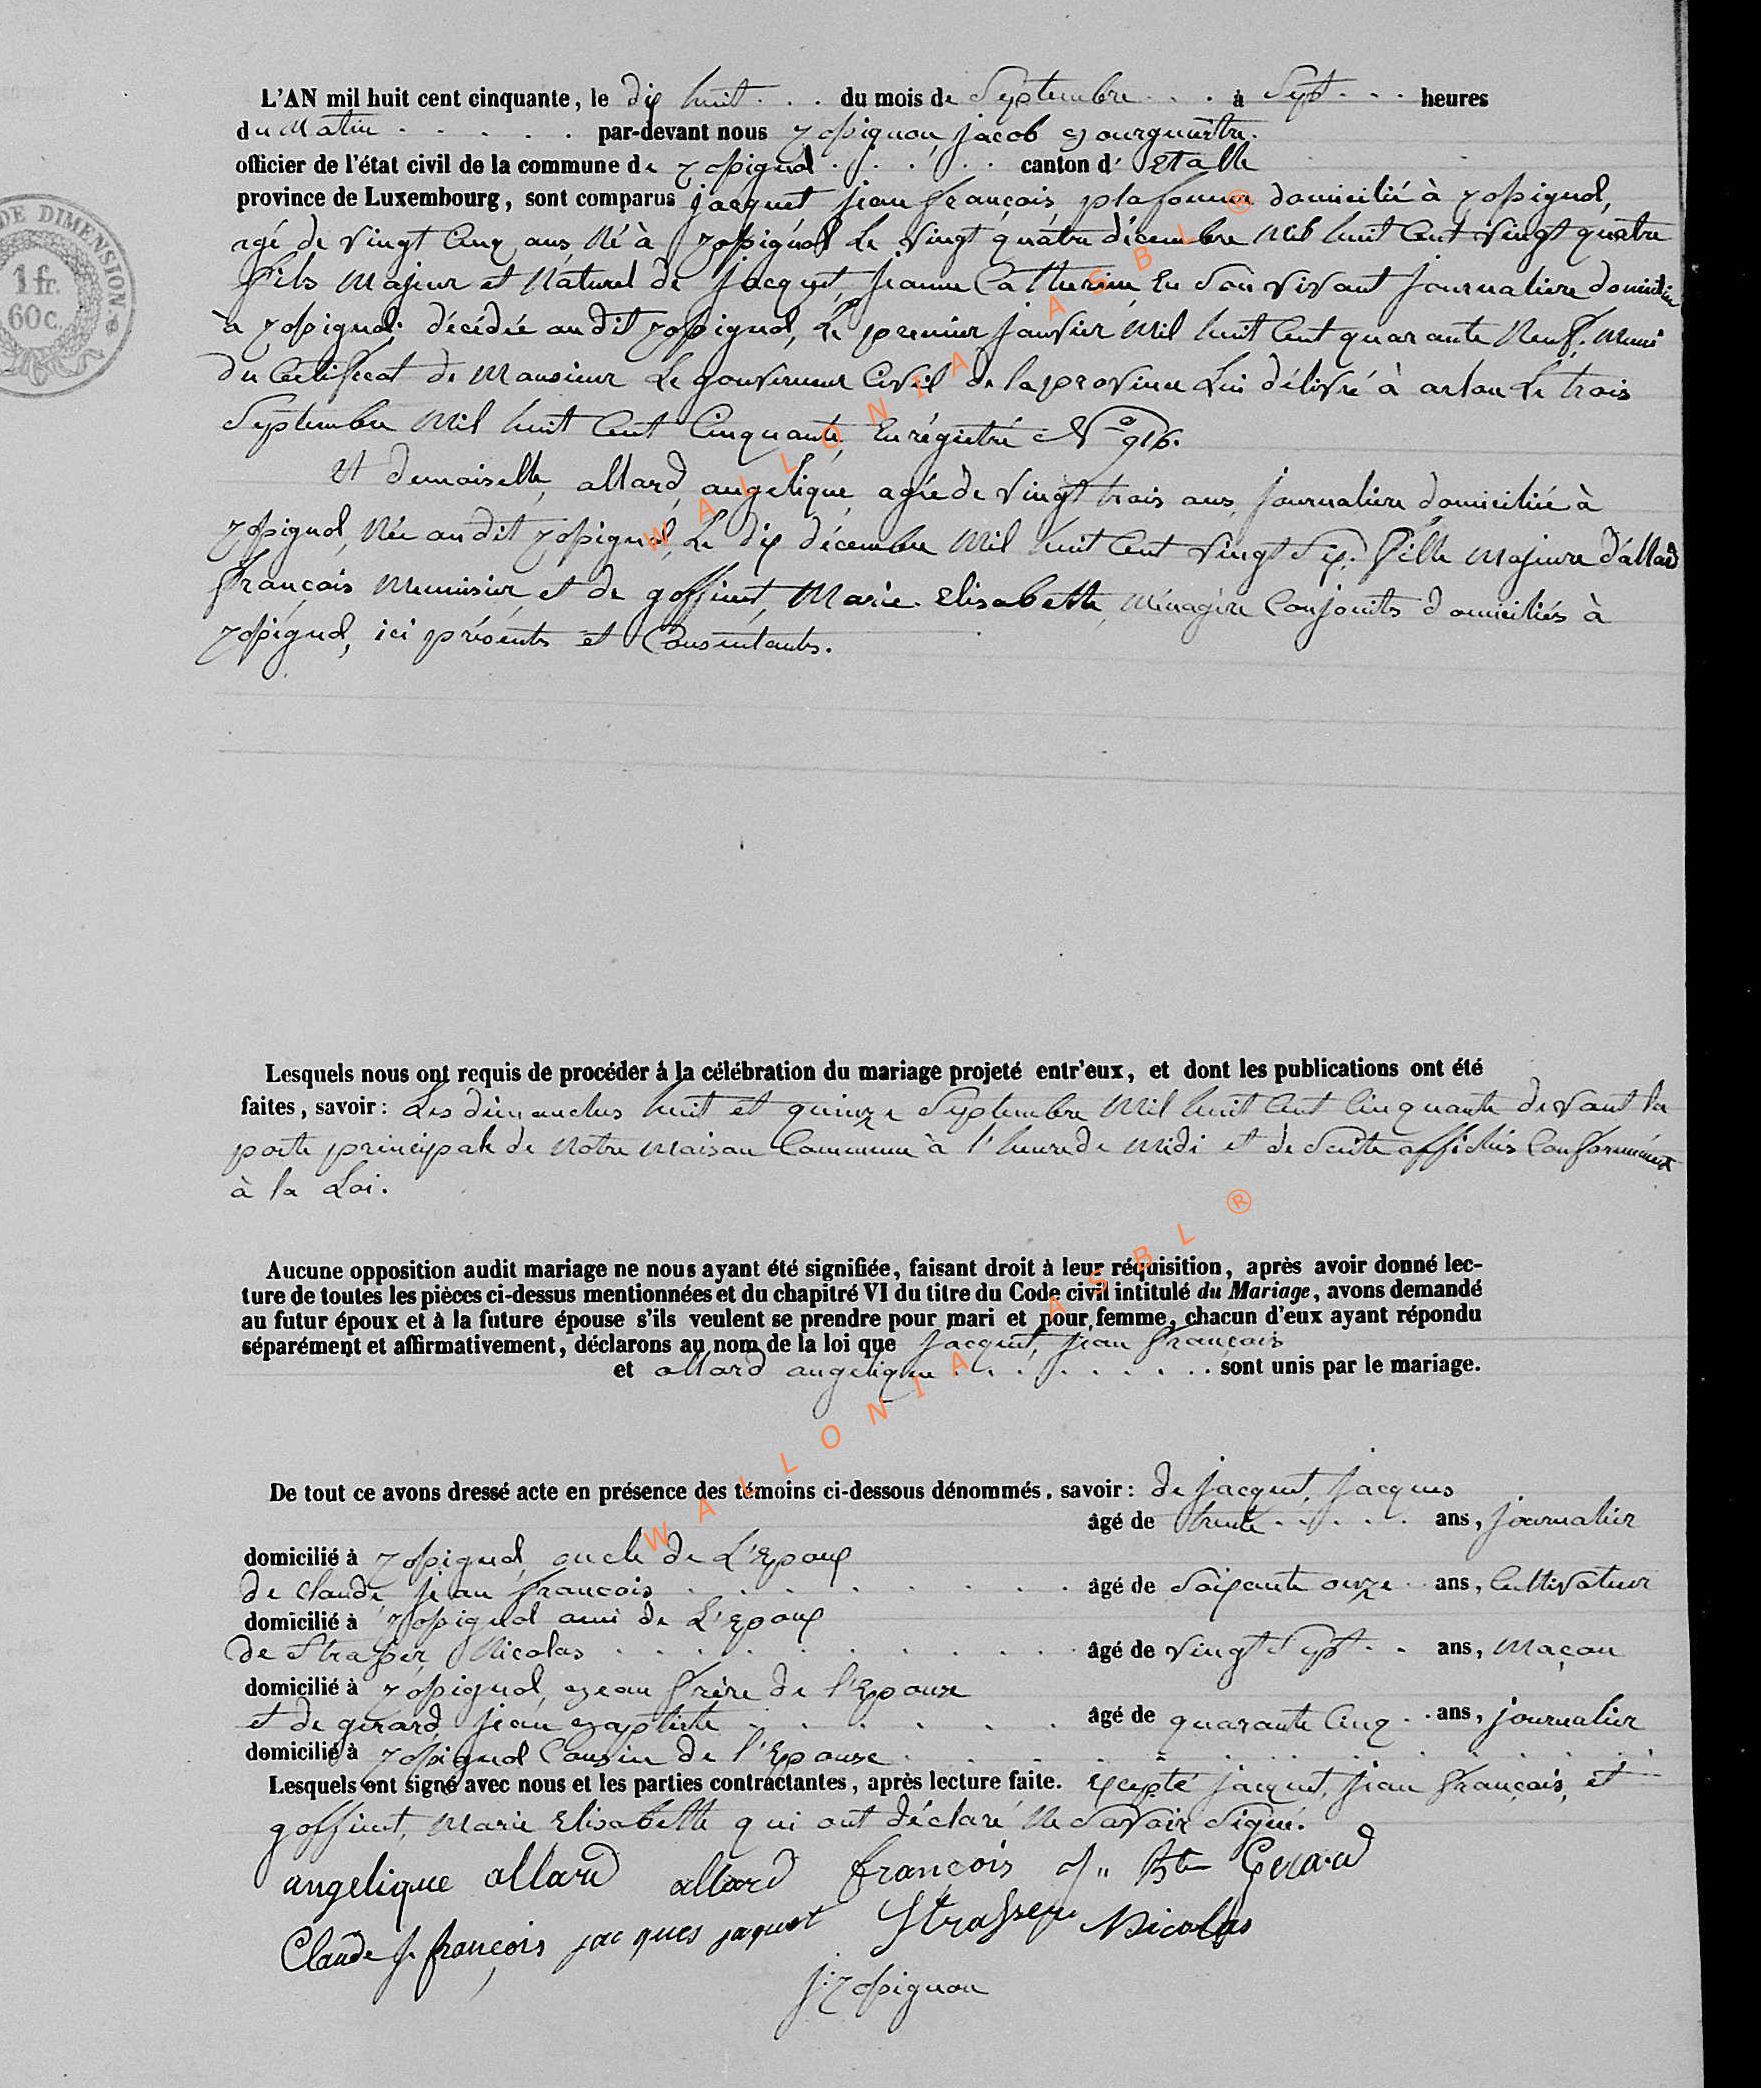 L'AN mil huit cent cinquante, le dix huit . . . du mois de Septembre . . . à Sept . . . heures
du Matin . . . . . par-devant nous Jopignon, jacob Bourgumêtre.
officier de l'état civil de la commune de Jopignol . . . . . canton d' Etalle
province de Luxembourg, sont comparus jacquet jean françois, plafonneur domicilié à Jopignol,
agé de vingt Cinq ans, Né à Jopignol Le vingt quatre décembre Mil huit Cent vingt quatre
fils Majeur et Naturel de Jacquet, Jeanne Catherine, En son vivant Journaliere domiciliée
à Jopignol; décédée audit Jopignol, Le premier janvier Mil huit Cent quarante Neuf; Muni
du Certificat de Monsieur Le gouverneur Civil de la province Lui délivré à arlon Le trois
Septembre Mil huit Cent Cinquante, Enrégistré N° 916.
Et demoiselle, allard, angelique, agée de vingt trois ans, Journaliere, domiciliée à
Jopignol, Née audit Jopignol, Le dix décembre Mil huit Cent vingt Six; fille Majeure d'allard
françois Menuisier, et de goffinet, Marie Elisabette, Ménagère Conjoints domiciliés à
Jopignol, ici présents et Consentants.
DE DIMENSION.
1 fr.
60c.
Lesquels nous ont requis de procéder à la célébration du mariage projeté entr'eux, et dont les publications ont été
faites, savoir: Les dimanches huit et quinze Septembre Mil huit Cent Cinquante devant la
porte principale de Notre Maison Commune à l'heure de Midi et de Suite affichés Conformément
à la Loi.
Aucune opposition audit mariage ne nous ayant été signifiée, faisant droit à leur réquisition, après avoir donné lec-
ture de toutes les pièces ci-dessus mentionnées et du chapitré VI du titre du Code civil intitulé du Mariage, avons demandé
au futur époux et à la future épouse s'ils veulent se prendre pour mari et pour femme, chacun d'eux ayant répondu
séparément et affirmativement, déclarons au nom de la loi que Jacquet, jean françois
et allard angelique . . . . . . . . sont unis par le mariage.
De tout ce avons dressé acte en présence des témoins ci-dessous dénommés, savoir: de jacquet, jacques
âgé de trente . . . . . ans, journalier
domicilié à Jopignol, oncle de L'Epoux
de claude, jean françois . . . . . . . . âgé de Soixante onze . . ans, Cultivateur
domicilié à Jopignol ami de L'Epoux
de Strasser, Nicolas . . . . . . . . . âgé de vingt Sept . . ans, Maçon
domicilié à Jopignol, Beau frère de l'Epouse
et de gerard, jean Baptiste . . . . . . âgé de quarante Cinq . . ans, journalier
domicilié à Jopignol Cousin de l'Epouse . . . . . . . . . . .
Lesquels ont signé avec nous et les parties contractantes, après lecture faite. Excepté jacquet, jean françois, et
goffinet, Marie Elisabette qui ont déclaré Ne Savoir Signé.
angelique allard allard françois J" Bte Gerard
Claude J. françois jacques jaquet Strasser Nicolas
J: Jopignon
WALLONIA ASBL ®
WALLONIA ASBL ®